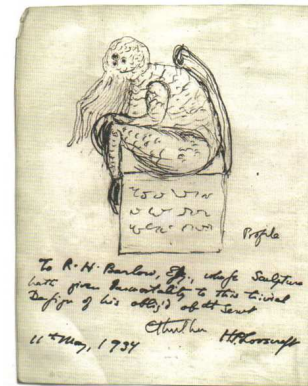 Profile
To R. H. Barlow, Esq., whose Sculpture
hath given Immortality to this trivial
Design of his oblig'd obt Servt
HPLovecraft
Cthulhu
11th May, 1934